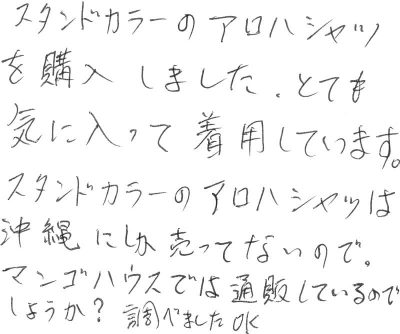 スタンドカラーのアロハシャツ
を購入しました、とても
気に入って着用しています。
スタンドカラーのアロハシャツは
沖縄にしか売ってないので。
マンゴハウスでは通販しているので
しょうか？ 調べましたOK